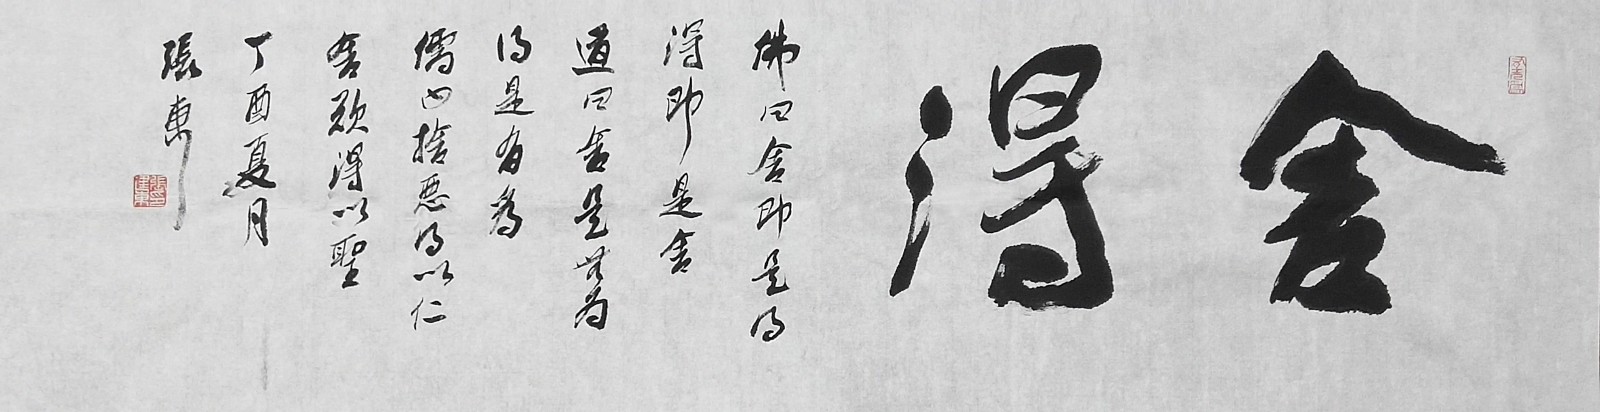 舍得
佛曰舍即是得
得即是舍
道曰舍是無為
得是有為
儒曰捨惡得以仁
舍欲得以聖
丁酉夏月
張東